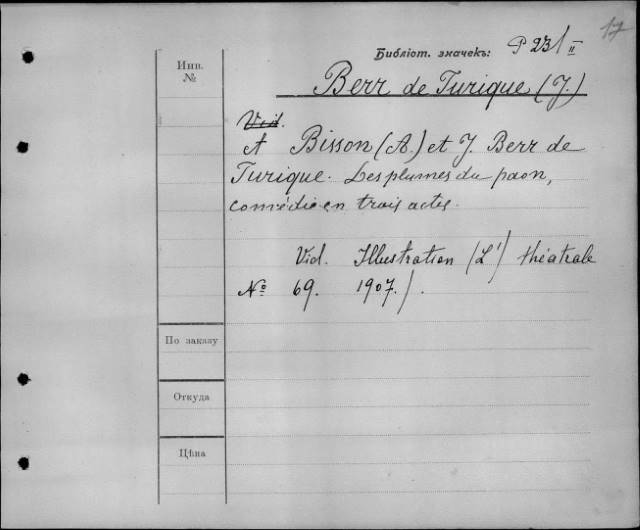 17
Инв.
№
Библіот. значекъ: P 23/II
Berr de Turique (J.)
Vid.
A Bisson (A.) et J. Berr de
Turique. Les plumes du paon,
comédie en trois actes.
Vid. Illustration (L') théatrale
№ 69. 1907./.
По заказу
Откуда
Цѣна